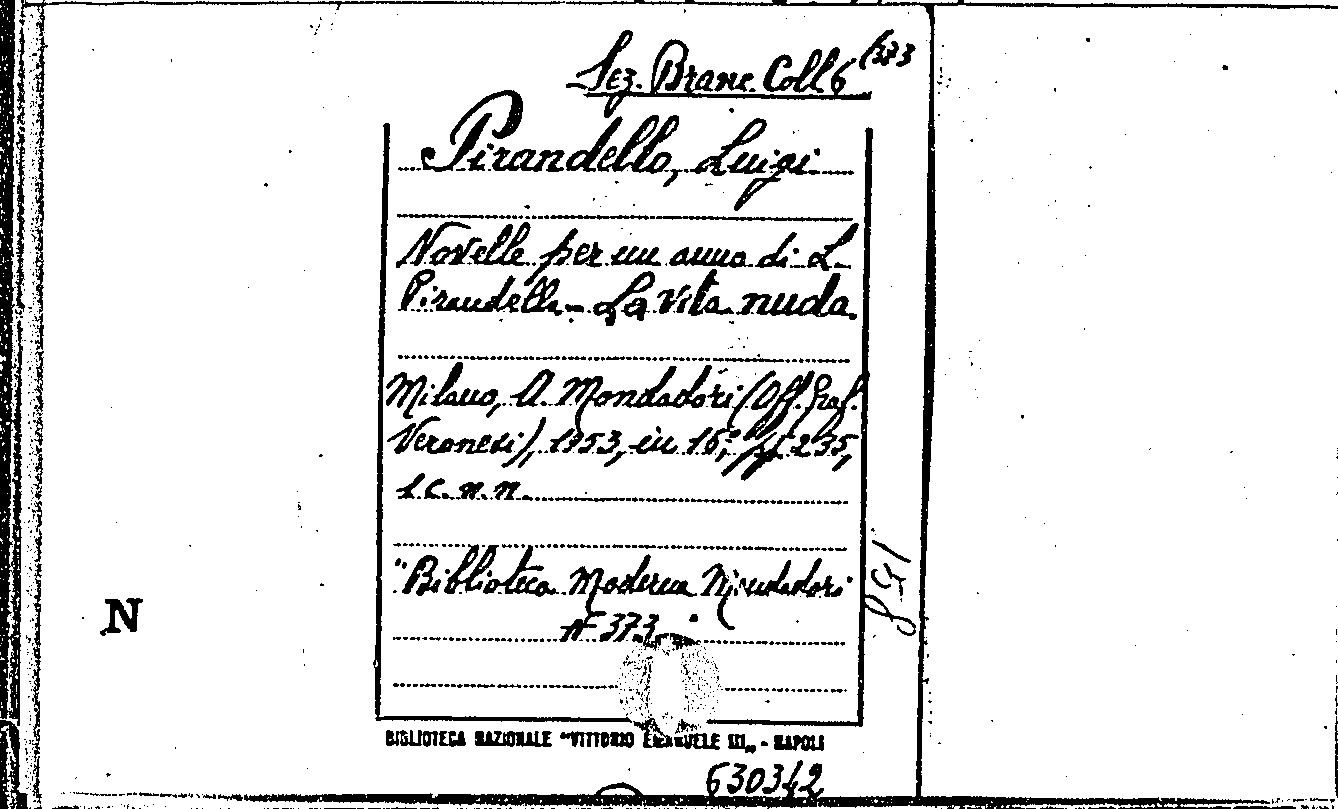 Sez. Branc. Coll 6 /373
Pirandello, Luigi
Novelle per un anno di L.
Pirandello - La vita nuda.
Milano, A. Mondadori (Off. Graf.
Veronesi), 1953, in 16°, pp. 235,
1 c. n. n.
"Biblioteca Moderna Mondadori
N° 373.
BIBLIOTECA NAZIONALE "VITTORIO EMANUELE III„ - NAPOLI
630342
N